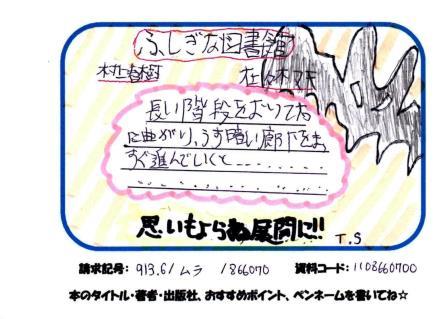 ふしぎな図書館
村上春樹 佐々木マキ
長い階段をおりて右
に曲がり、うす暗い廊下をま
すぐ進んでいくと............
思いもよらぬ展開に!!
T.S
請求記号: 913.6/ ムラ /866070 資料コード: 1108660700
本のタイトル・著者・出版社、おすすめポイント、ペンネームを書いてね☆